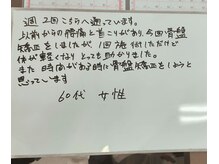 週2回こちらへ通っています。
以前からの腰痛と首こりがあり、今回骨盤
矯正をしましたが1回施術しただけで
体が軽くなりとっても助かりました。
また時間がある時に骨盤矯正をしようと
思っています
60代 女性